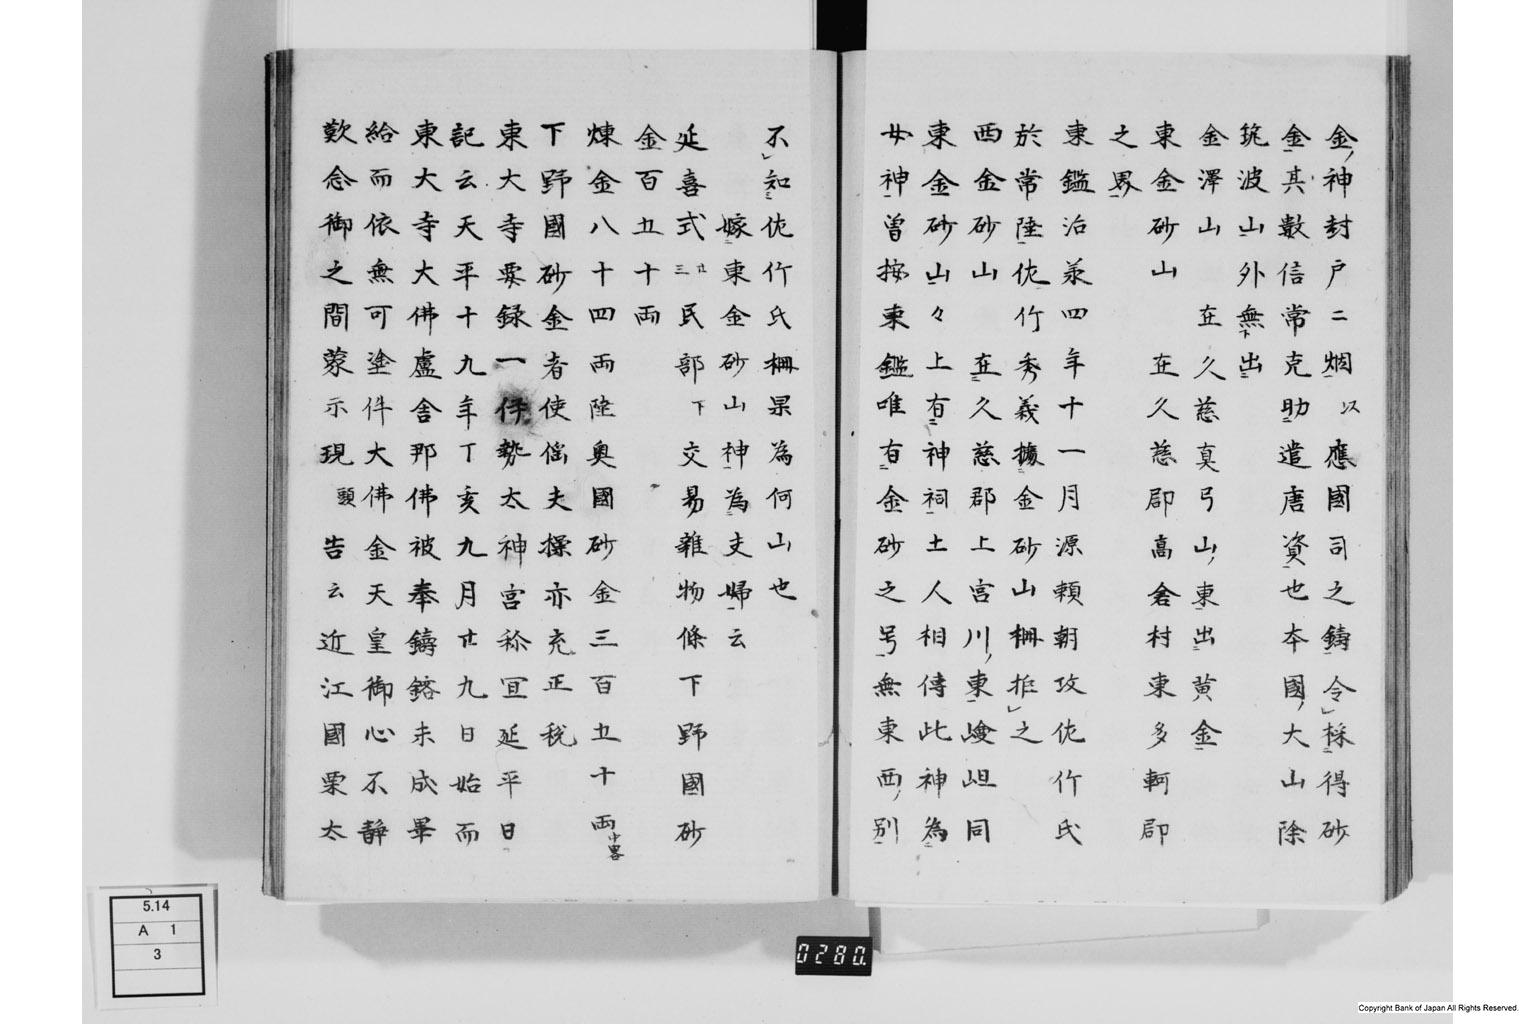 金神封戸二烟以應國司之鑄令採得砂
金其數信常克助遣唐資也本國大山除
筑波山外無出
金澤山　在久慈真弓山東出黄金
東金砂山　在久慈郡高倉村東多軻郡
之界
東鑑治承四年十一月源頼朝攻佐竹氏
於常陸佐竹秀義據金砂山柵拒之
西金砂山　在久慈郡上宮川東峻岨同
東金砂山々上有神祠土人相傳此神為
女神曽按東鑑唯有金砂之号無東西別
不知佐竹氏柵果為何山也
嫁東金砂山神為夫婦云
延喜式廿三民部下交易雑物條下野國砂
金百五十両
煉金八十四両陸奥國砂金三百五十両中略
下野國砂金者使傜夫採亦充正税
東大寺要録一伊勢太神宮祢冝延平日
記云天平十九年丁亥九月廿九日始而
東大寺大佛盧舎那佛被奉鑄鎔未成畢
給而依無可塗件大佛金天皇御心不静
歎念御之間蒙示現頭告云近江國栗太
5.14
A 1
3
0280.
Copyright Bank of Japan All Rights Reserved.